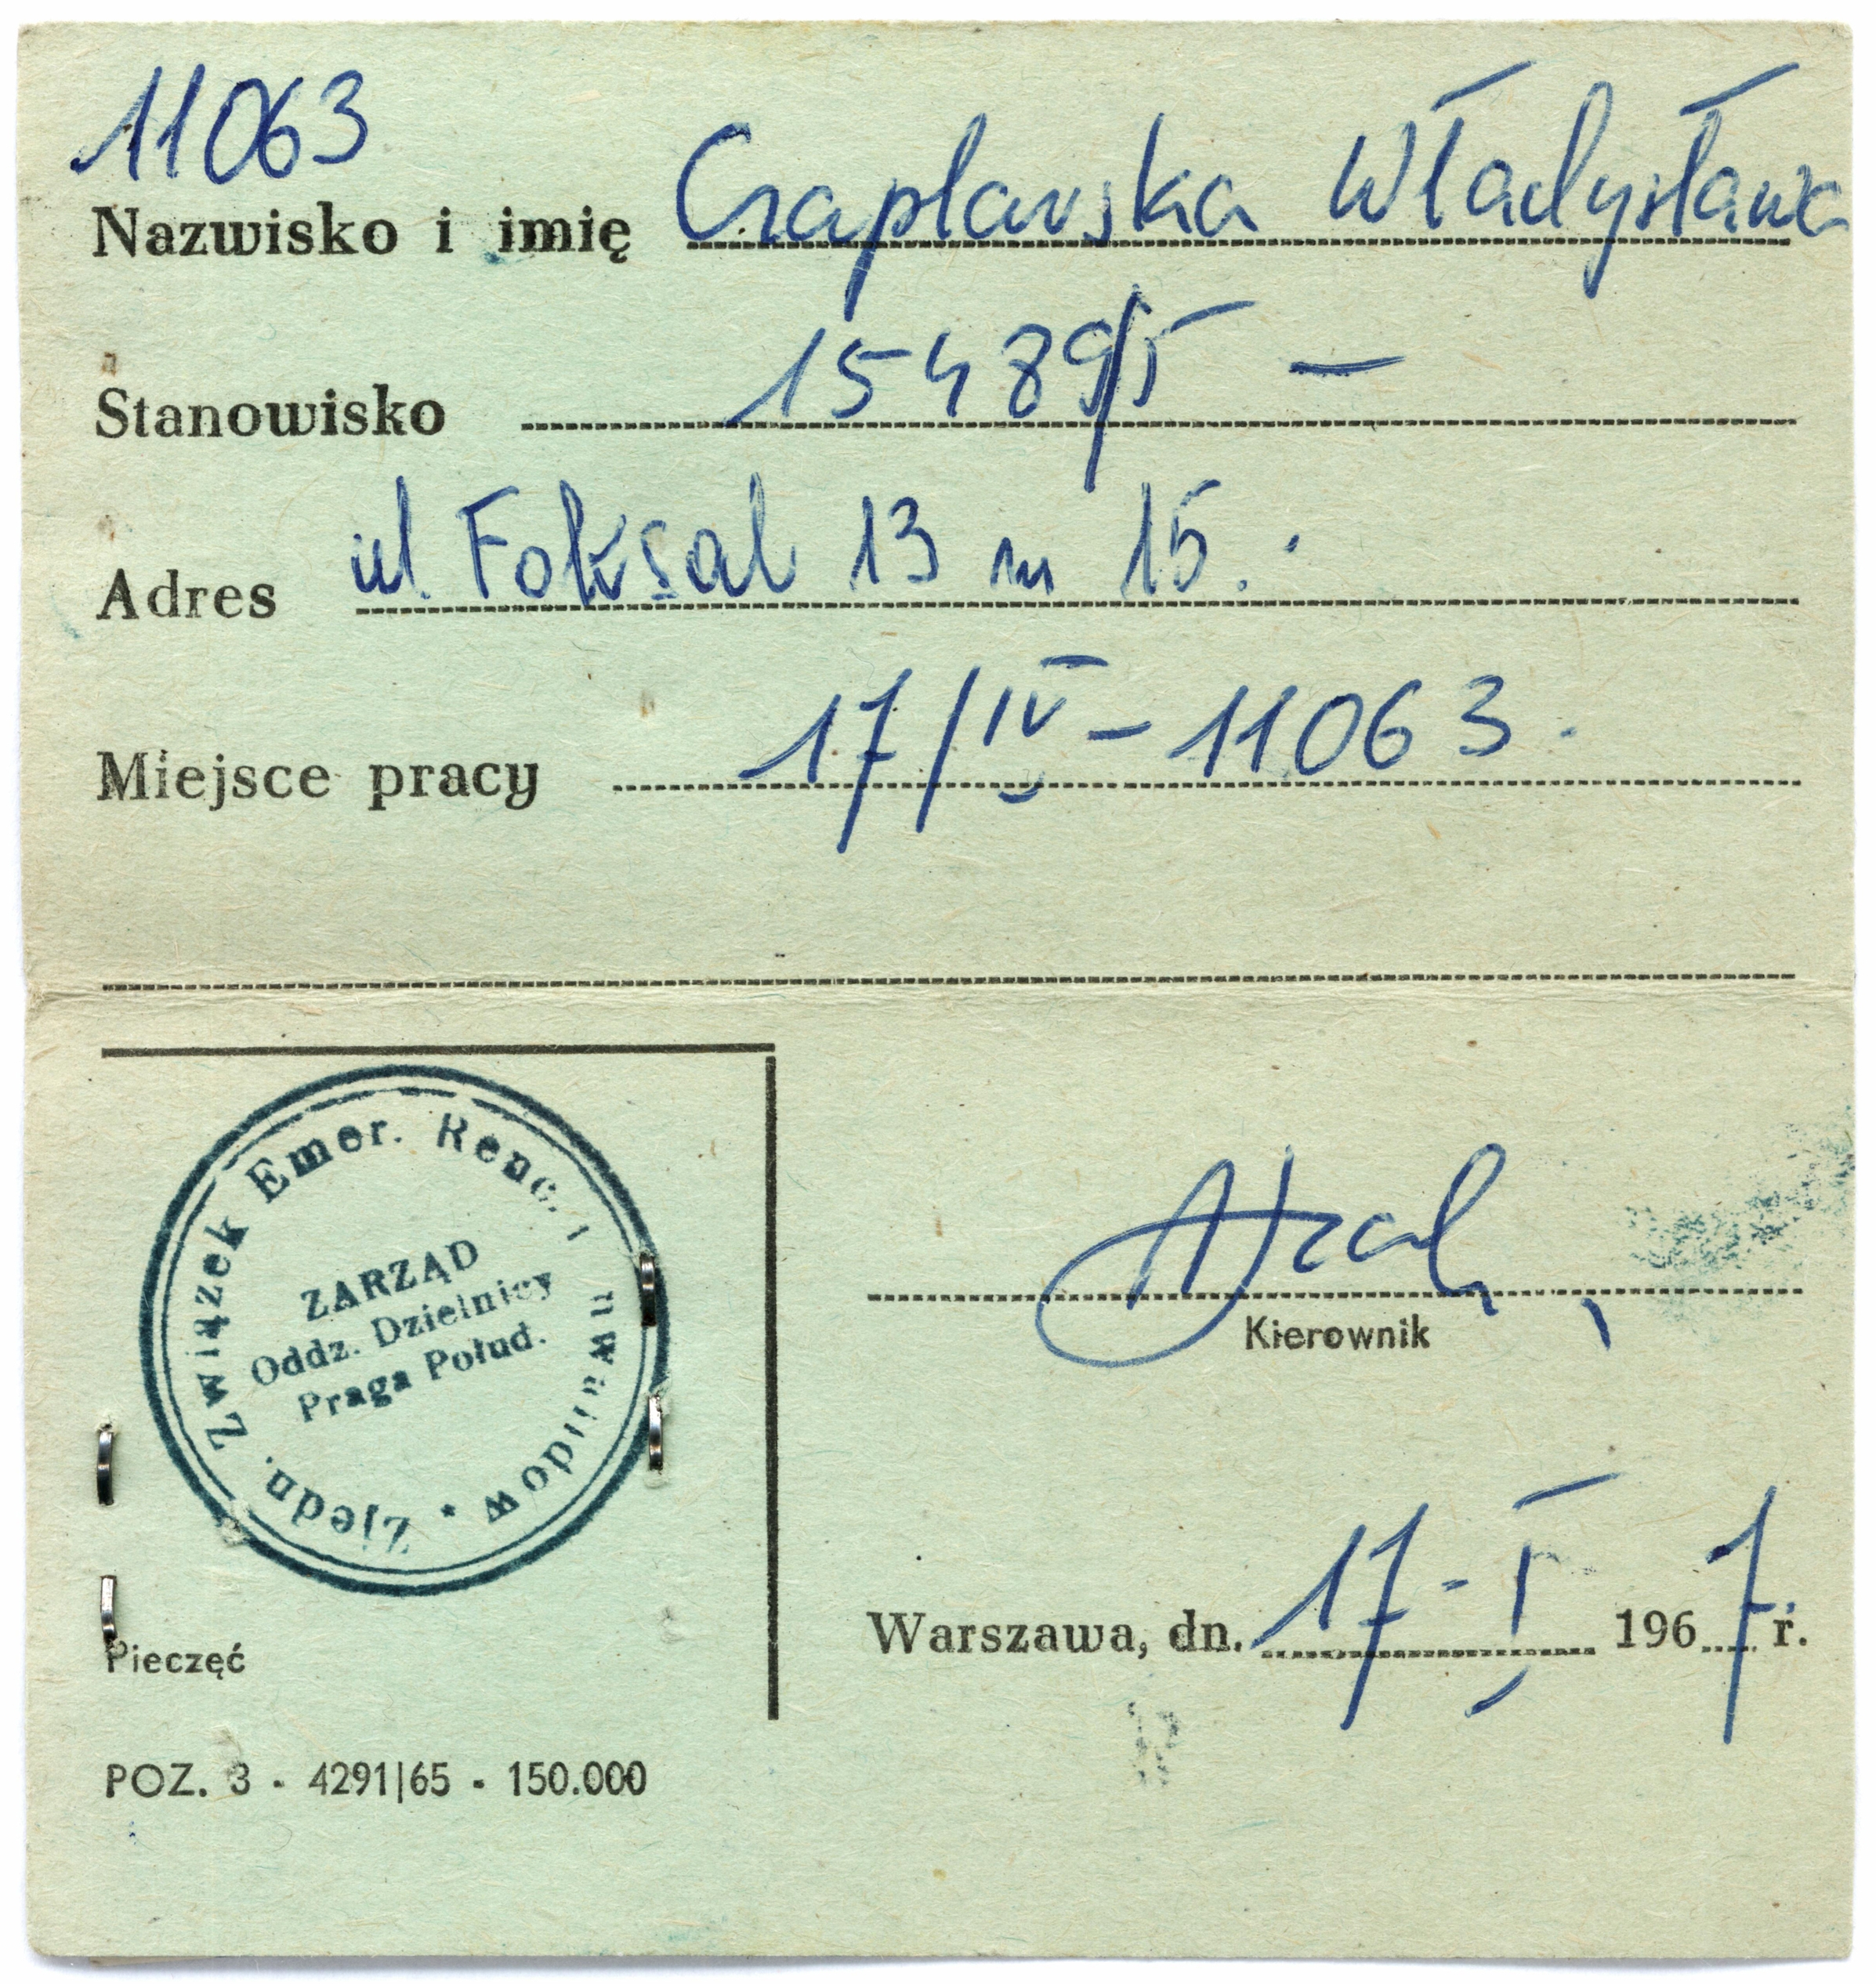 11063
Nazwisko i imię Czaplarska Władysława
Stanowisko 15489/I —
Adres ul. Foksal 13 m 15.
Miejsce pracy 17/IV – 11063.
Zjedn. Związek Emer. Renc. i nwalidów *
ZARZĄD
Oddz. Dzielnicy
Praga Połud.
Kierownik
Warszawa, dn. 17 - I 1967 r.
Pieczęć
POZ. 3 - 4291|65 - 150.000